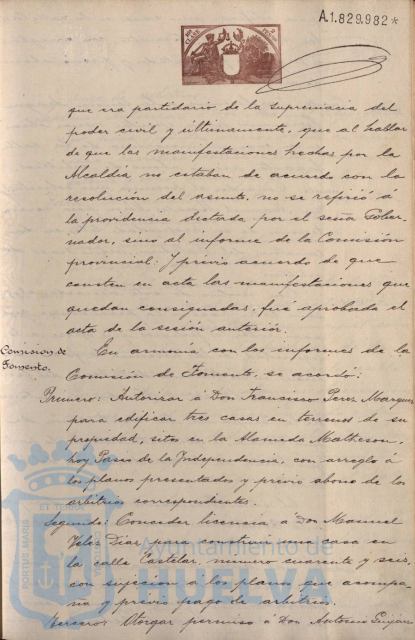 A.1.829.982*
que era partidario de la supremacia del
poder civil y ultimamente, que al hablar
de que las manifestaciones hechas por la
Alcaldia no estaban de acuerdo con la
resolución del asunto, no se refirió á
la providencia dictada por el señor Gober-
nador, sino al informe de la Comisión
provincial: Y previo acuerdo de que
consten en acta las manifestaciones que
quedan consignadas, fué aprobada el
acta de la sesión anterior.
Comision de
Fomento.
En armonía con los informes de la
Comisión de Fomento, se acordó:
Primero: Autorizar á Don Francisco Perez Marquez
para edificar tres casas en terrenos de su
propiedad, sitos en la Alameda Matheson,
hoy Paseo de la Independencia, con arreglo á
los planos presentados y previo abono de los
arbitrios correspondientes.
Segundo: Conceder licencia á Don Manuel
Velez Diaz para construir una casa en
la calle Castelar, numero cuarenta y seis,
con sujecion á los planos que acompa-
ña y previo pago de arbitrios.
Tercero: Otorgar permiso á Don Antonio
PORTUS MARIS ET TERRAE
Ayuntamiento de
HUELVA